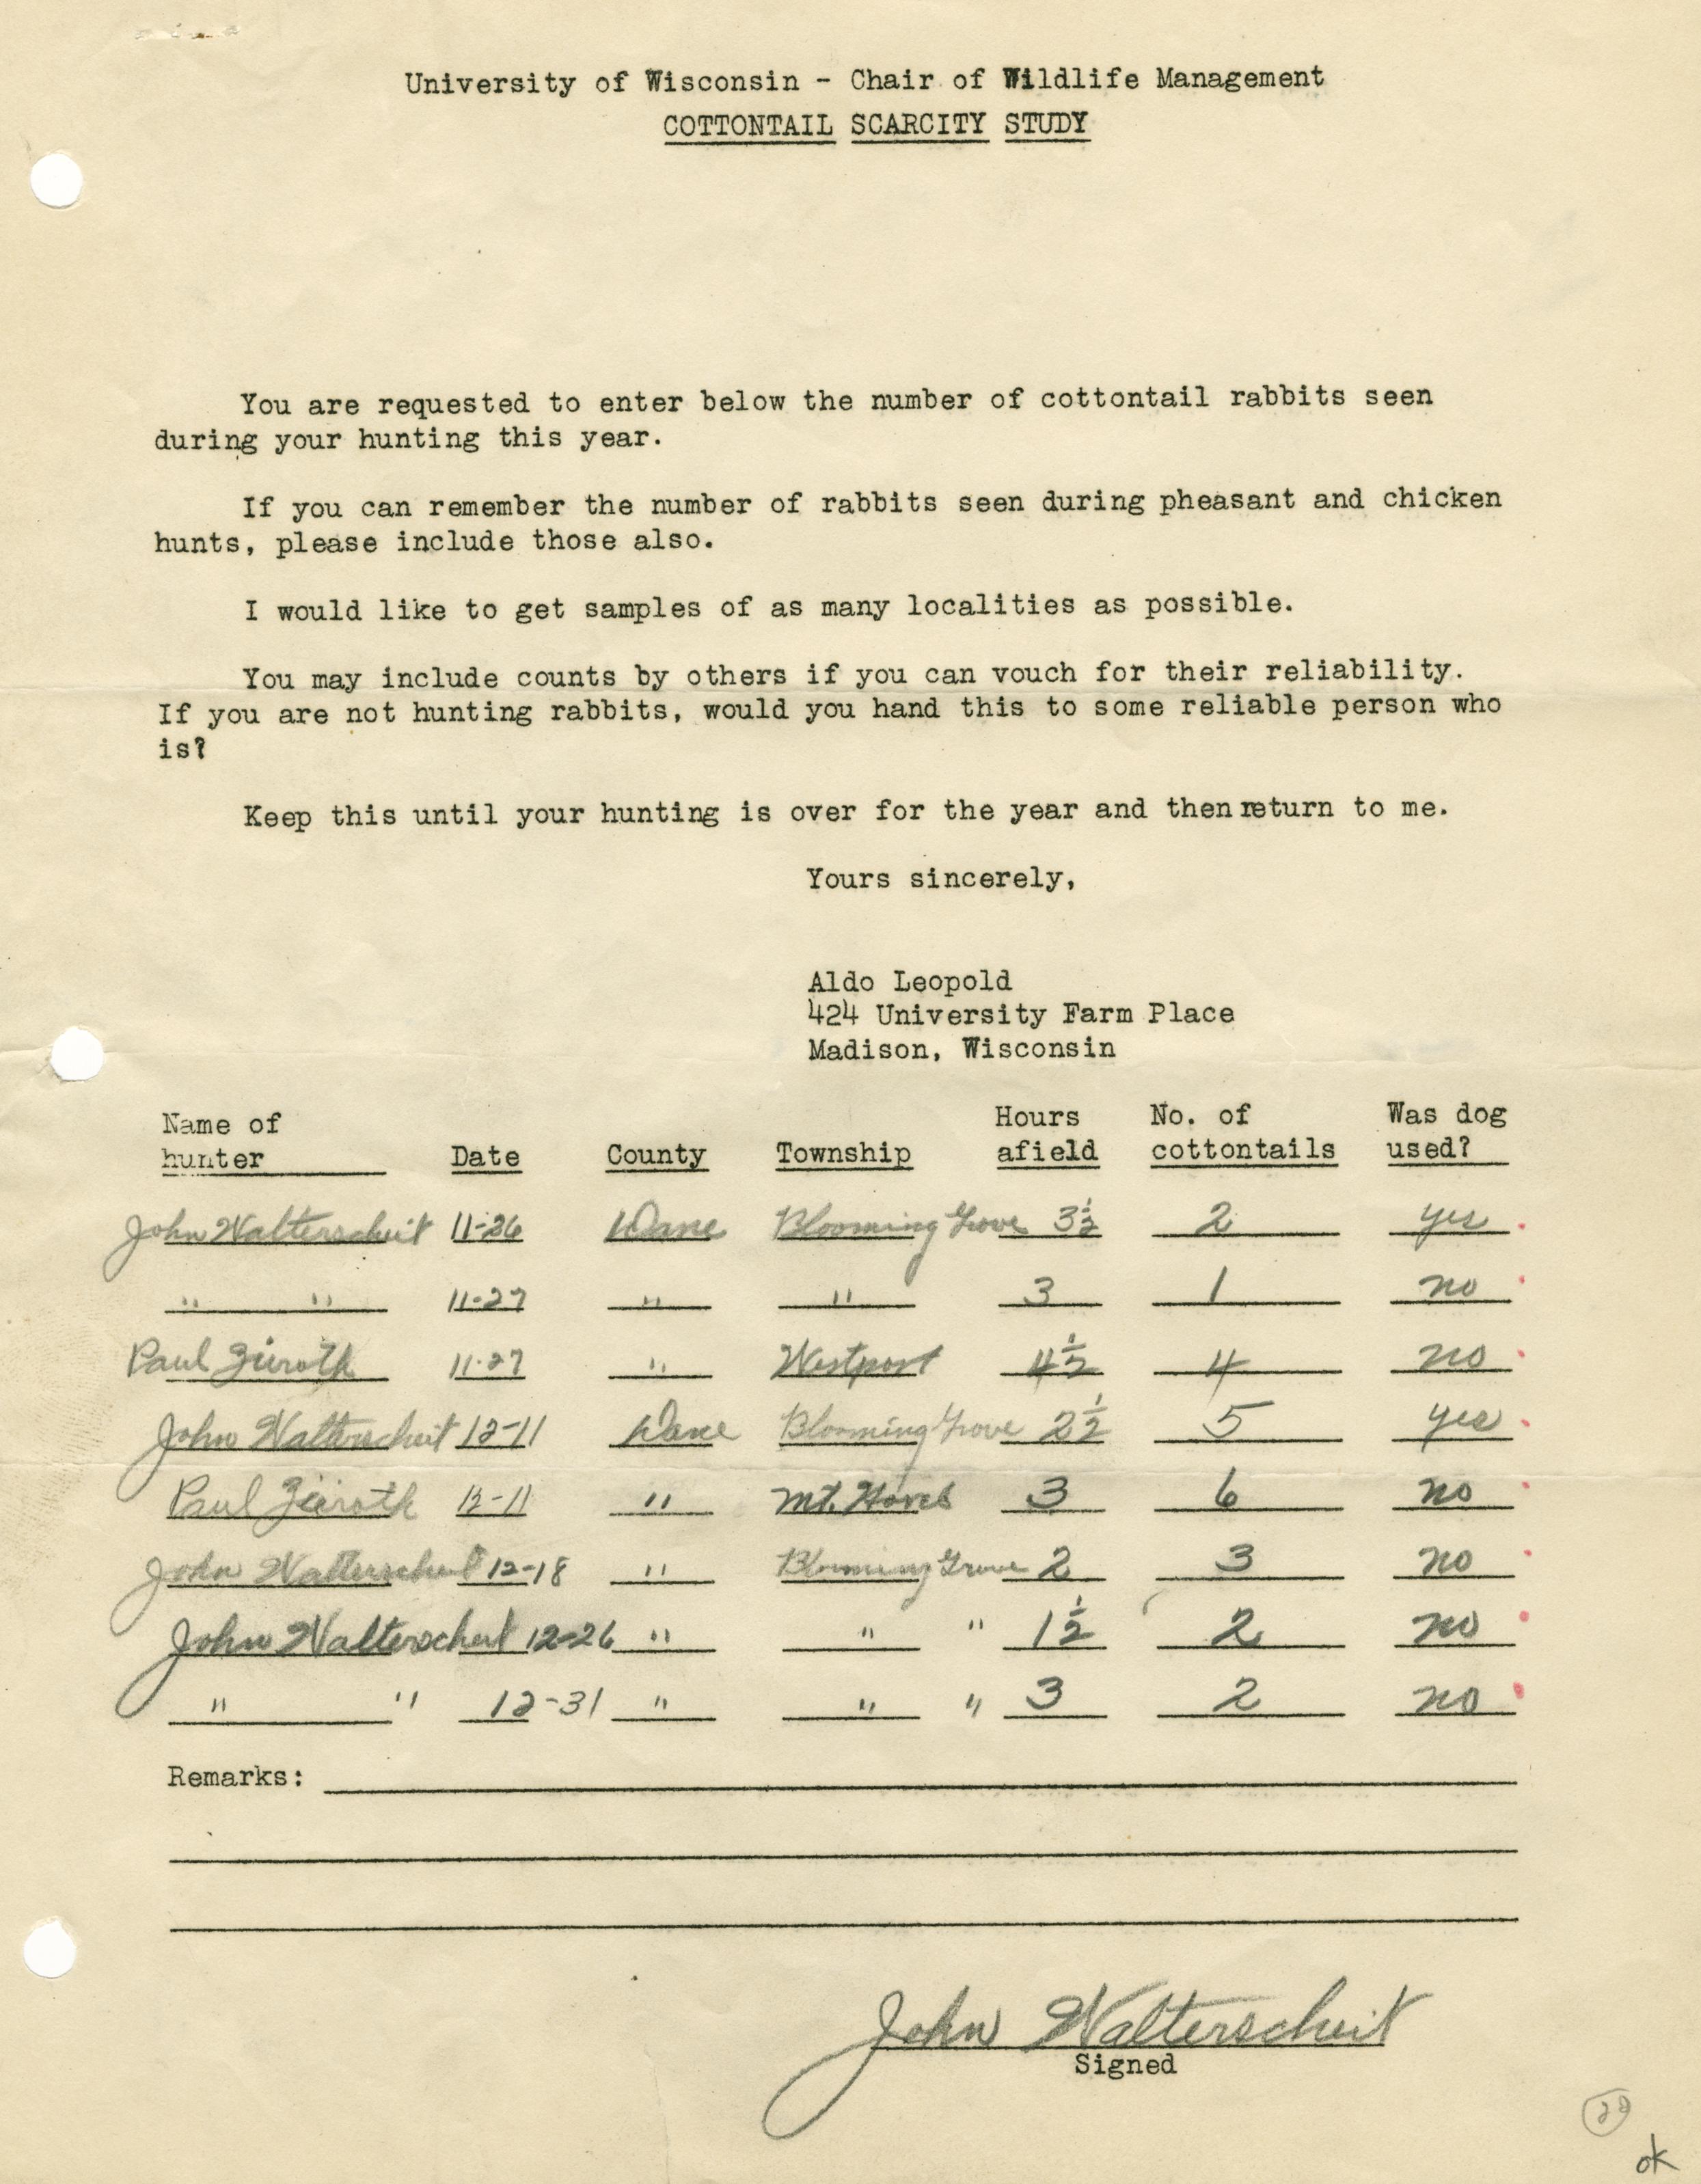 University of Wisconsin - Chair of Wildlife Management
COTTONTAIL SCARCITY STUDY
You are requested to enter below the number of cottontail rabbits seen
during your hunting this year.
If you can remember the number of rabbits seen during pheasant and chicken
hunts, please include those also.
I would like to get samples of as many localities as possible.
You may include counts by others if you can vouch for their reliability.
If you are not hunting rabbits, would you hand this to some reliable person who
is?
Keep this until your hunting is over for the year and then return to me.
Yours sincerely,
Aldo Leopold
424 University Farm Place
Madison, Wisconsin
Name of hunter Date County Township Hours afield No. of cottontails Was dog used?
John Walterscheit 11-26 Dane Blooming Grove 3½ 2 yes
" " 11-27 " " 3 1 no
Paul 11-27 " Westport 4½ 4 no
John Walterscheit 12-11 Dane Blooming Grove 2½ 5 yes
Paul 12-11 " Mt. Horeb 3 6 no
John Walterscheit 12-18 " Blooming Grove 2 3 no
John Walterscheit 12-26 " " " 1½ 2 no
" " 12-31 " " " 3 2 no
Remarks:
John Walterscheit
Signed
ok